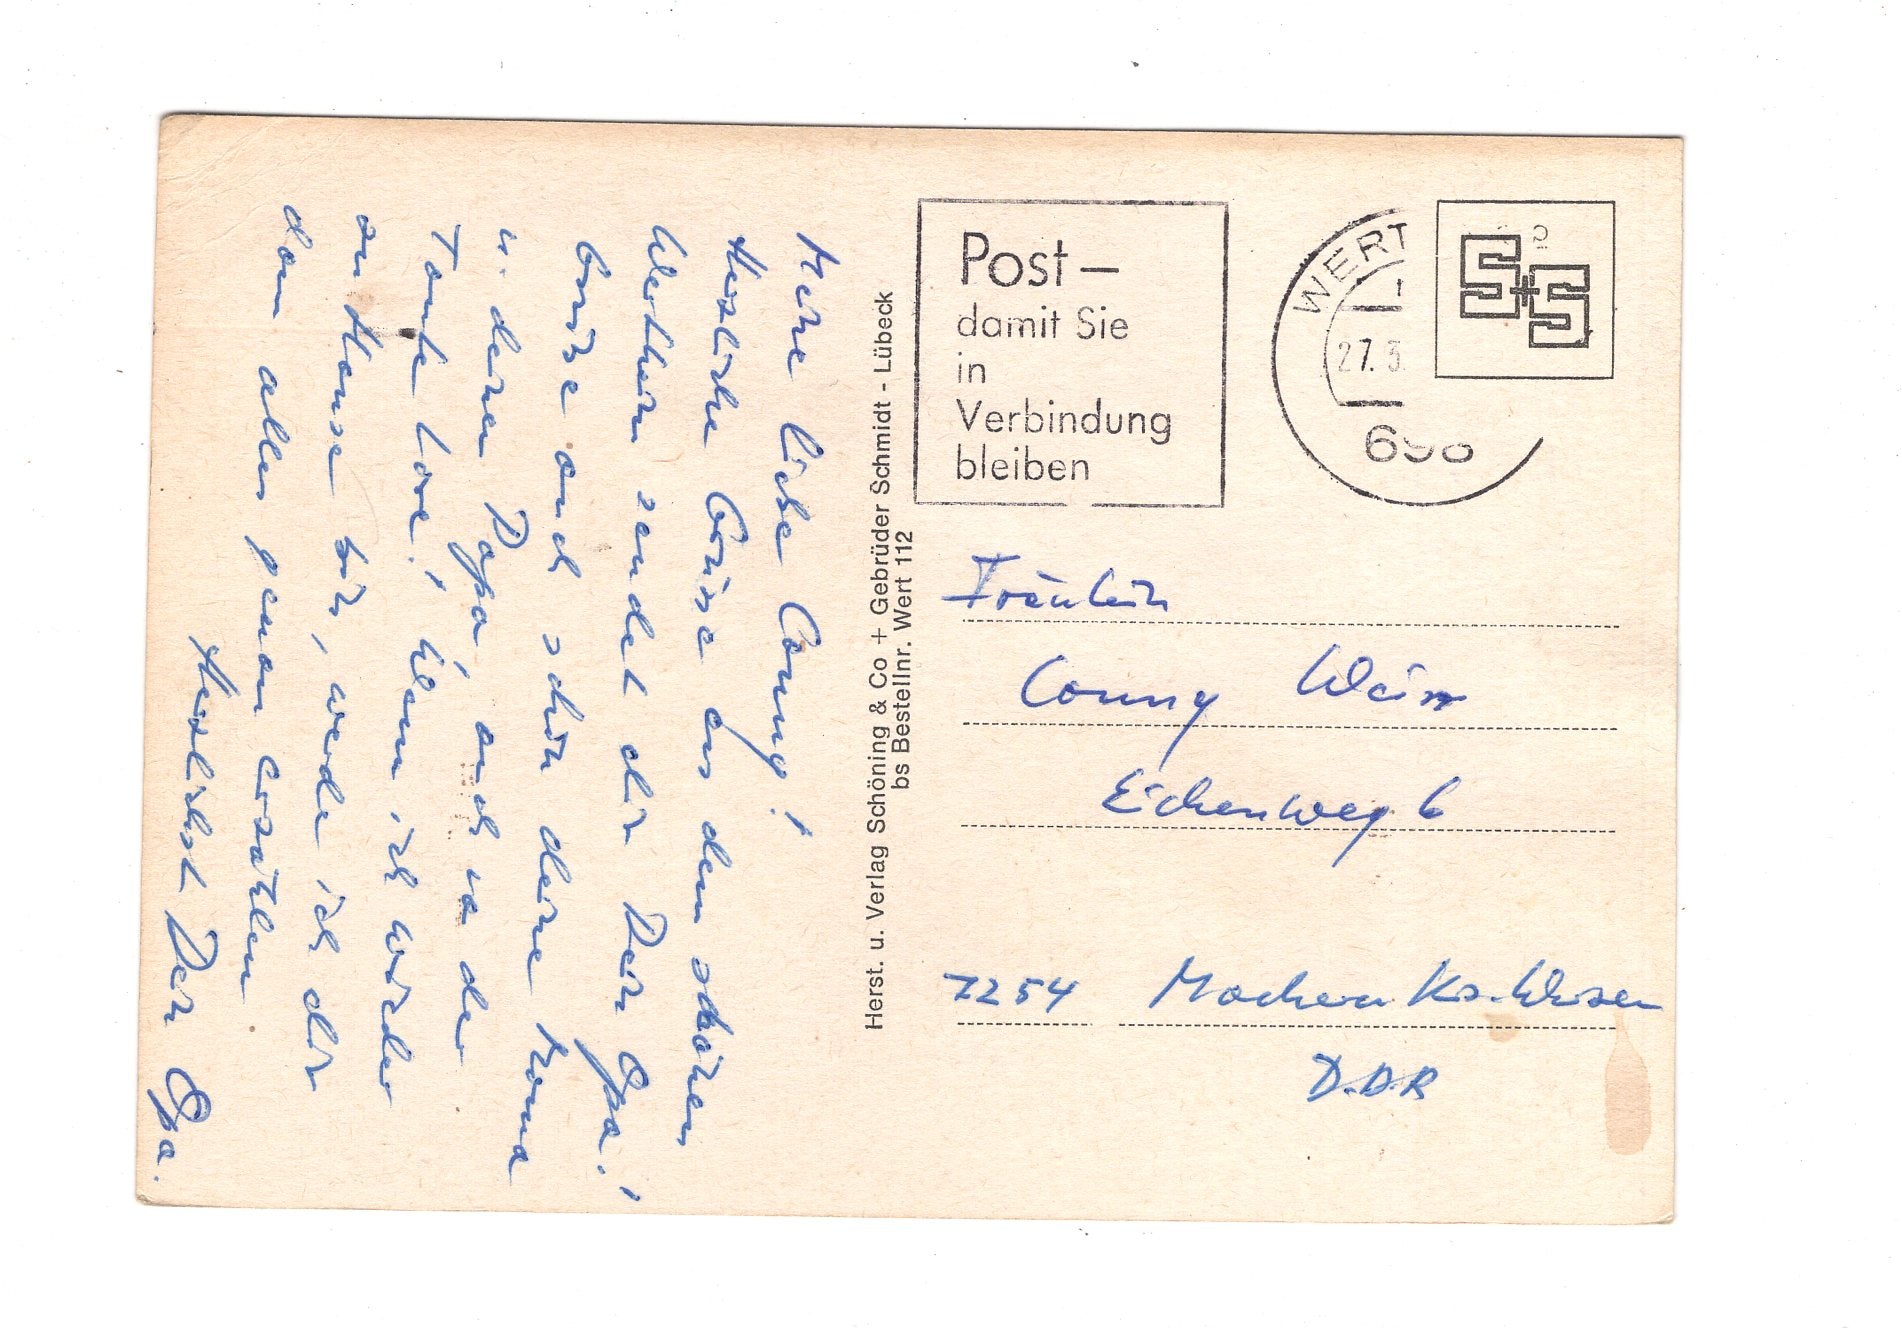 Meine liebe Conny!
Herzliche Grüsse aus dem schönen
Wertheim sendet dir Dein Opa!
Grüsse auch schön deine Mama
u. deinen Papa, auch va der
Tante Lore! Wenn ich wieder
zu Hause bin, werde ich dir
dann alles genau erzählen
Herzlichst Dein Opa.
Herst. u. Verlag Schöning & Co + Gebrüder Schmidt - Lübeck
bs Bestellnr. Wert 112
Post –
damit Sie
in
Verbindung
bleiben
WERT
27.5.
698
S+S
Fräulein
Conny Weiss
Eichenweg 6
7254 Machern Krs. Wurzen
D.D.R